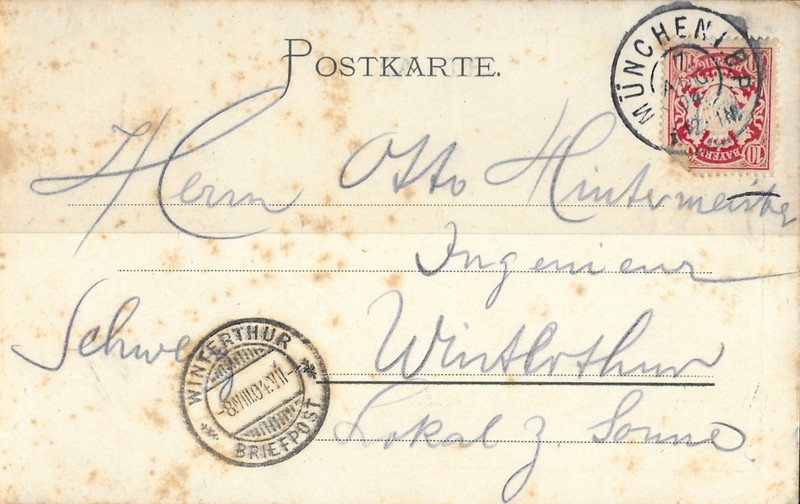 POSTKARTE.
MÜNCHEN I B.P.
7
AUG
04
Herrn Otto Hintermeister
Ingenieur
Schweiz Winterthur
Lokal z. Sonne
BAYERN
10
10
WINTERTHUR
-8.VIII.04.VII-
BRIEFPOST